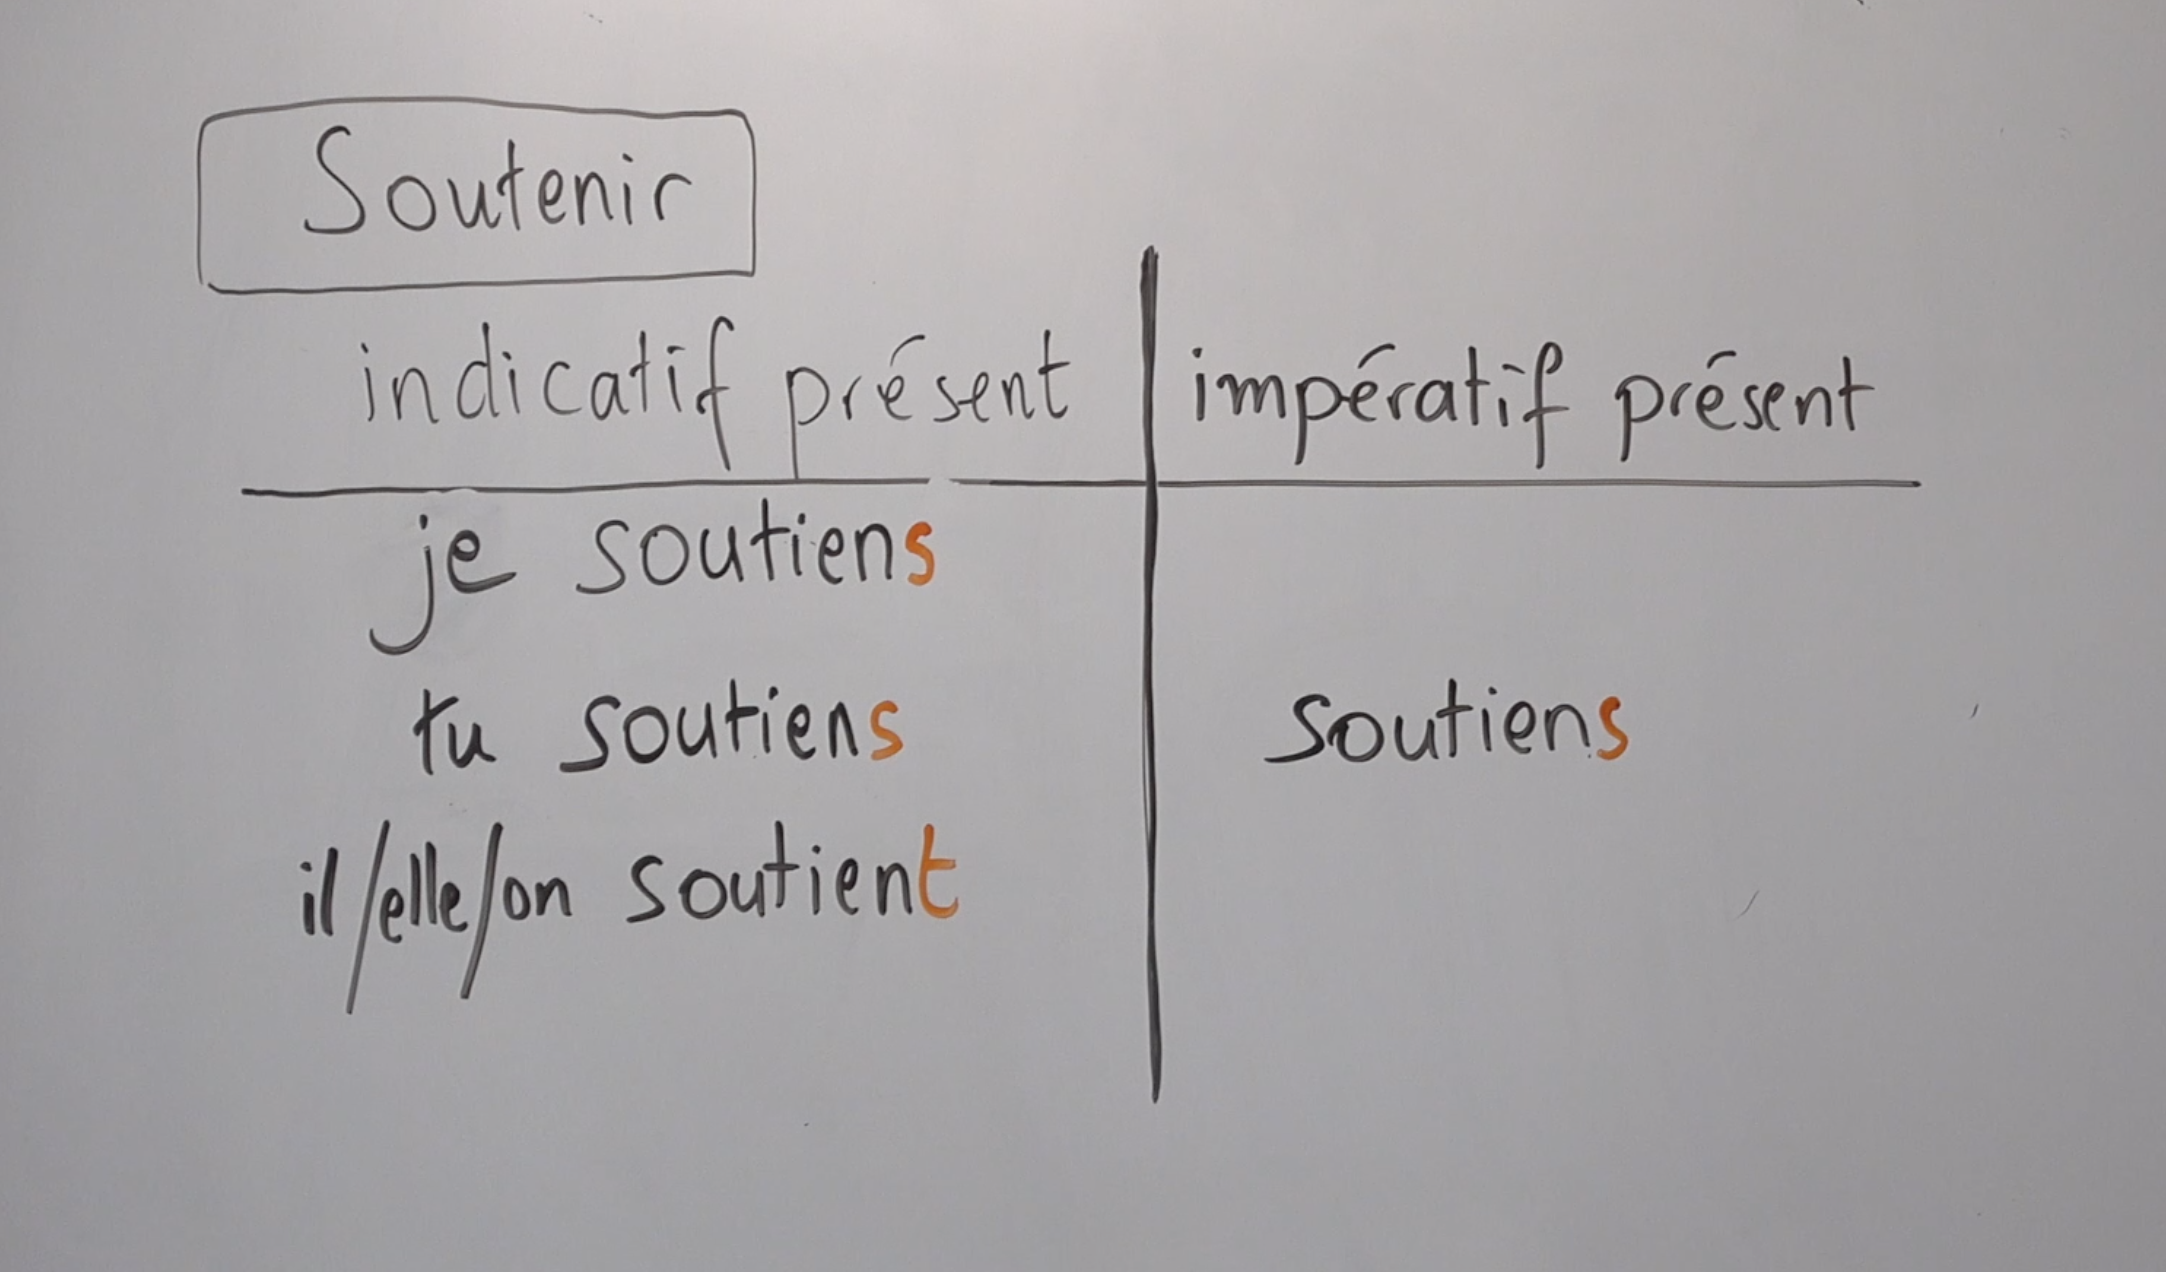 Soutenir
indicatif présent impératif présent
je soutiens
tu soutiens soutiens
il/elle/on soutient